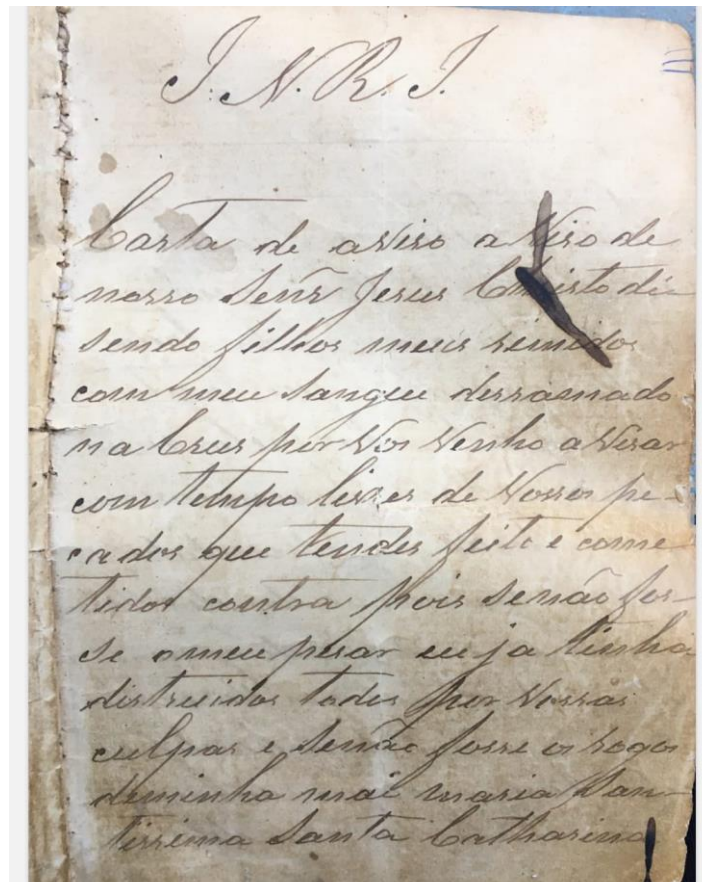 J. N. R. J.
Carta de aviso a Viso de
nosso Senr Jesus Christo di-
sendo filhos meus remidos
com meu Sangue derramado
na Crus por Vos Venho a Visar
com tempo de Vossos pe-
cados que tendes feito e come
tidos contra pois senão fos-
se o meu pesar eu ja tinha
distruidos todos por Vossas
culpas e senão fosse os rogos
deminha mãi maria San-
tissima Santa Catharina